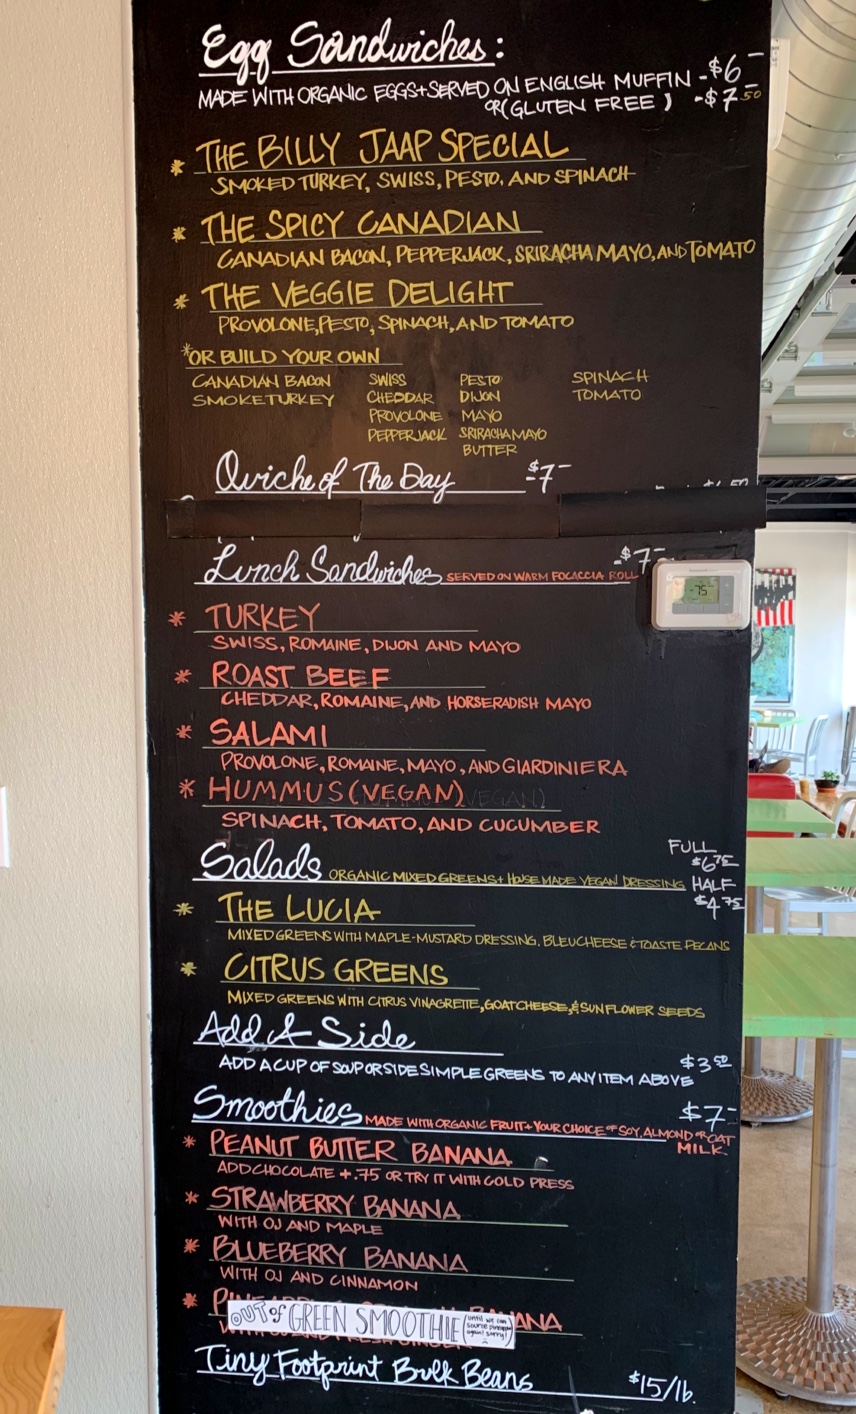 Egg Sandwiches:
MADE WITH ORGANIC EGGS + SERVED ON ENGLISH MUFFIN - $6-
OR (GLUTEN FREE) - $7.50
* THE BILLY JAAP SPECIAL
SMOKED TURKEY, SWISS, PESTO, AND SPINACH
* THE SPICY CANADIAN
CANADIAN BACON, PEPPERJACK, SRIRACHA MAYO, AND TOMATO
* THE VEGGIE DELIGHT
PROVOLONE, PESTO, SPINACH, AND TOMATO
*OR BUILD YOUR OWN
CANADIAN BACON SWISS PESTO SPINACH
SMOKETURKEY CHEDDAR DIJON TOMATO
PROVOLONE MAYO
PEPPERJACK SRIRACHA MAYO
BUTTER
Quiche of The Day $7-
Lunch Sandwiches SERVED ON WARM FOCACCIA ROLL -$7-
75
* TURKEY
SWISS, ROMAINE, DIJON AND MAYO
* ROAST BEEF
CHEDDAR, ROMAINE, AND HORSERADISH MAYO
* SALAMI
PROVOLONE, ROMAINE, MAYO, AND GIARDINIERA
* HUMMUS (VEGAN)
SPINACH, TOMATO, AND CUCUMBER
FULL
$6.75
Salads ORGANIC MIXED GREENS + HOUSE MADE VEGAN DRESSING HALF
$4.75
* THE LUCIA
MIXED GREENS WITH MAPLE-MUSTARD DRESSING, BLEU CHEESE & TOASTE PECANS
* CITRUS GREENS
MIXED GREENS WITH CITRUS VINAGRETTE, GOAT CHEESE, & SUNFLOWER SEEDS
Add A Side
ADD A CUP OF SOUP OR SIDE SIMPLE GREENS TO ANY ITEM ABOVE $3.50
Smoothies MADE WITH ORGANIC FRUIT + YOUR CHOICE OF SOY, ALMOND OR OAT MILK. $7-
* PEANUT BUTTER BANANA
ADD CHOCOLATE +.75 OR TRY IT WITH COLD PRESS
* STRAWBERRY BANANA
WITH OJ AND MAPLE
* BLUEBERRY BANANA
WITH OJ AND CINNAMON
* BANANA
OUT OF GREEN SMOOTHIE (until we can source pineapple again! sorry!)
Tiny Footprint Bulk Beans $15/lb.